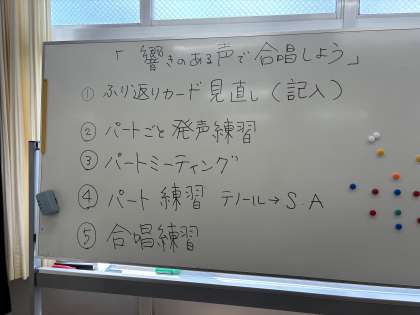 「響きのある声で合唱しよう」
① ふり返りカード見直し(記入)
② パートごと発声練習
③ パートミーティング
④ パート練習 テノール→S.A
⑤ 合唱練習